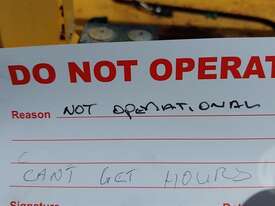 DO NOT OPERAT
Reason NOT OPERATIONAL
CANT GET HOURS
Signature